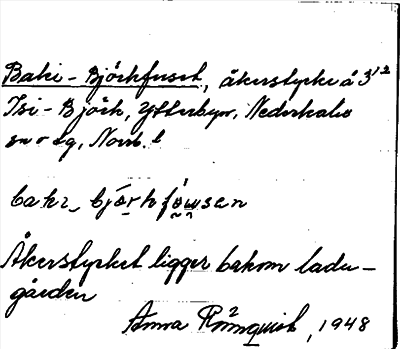 Baki-Björkfuset, åkerstycke å 3¹²
Isi-Björk, Ytterbyn, Nederkalix
sn o tg, Norrb. l
baki björkföusen
Åkerstycket ligger bakom ladu-
gården
Anna Rönnquist, 1948